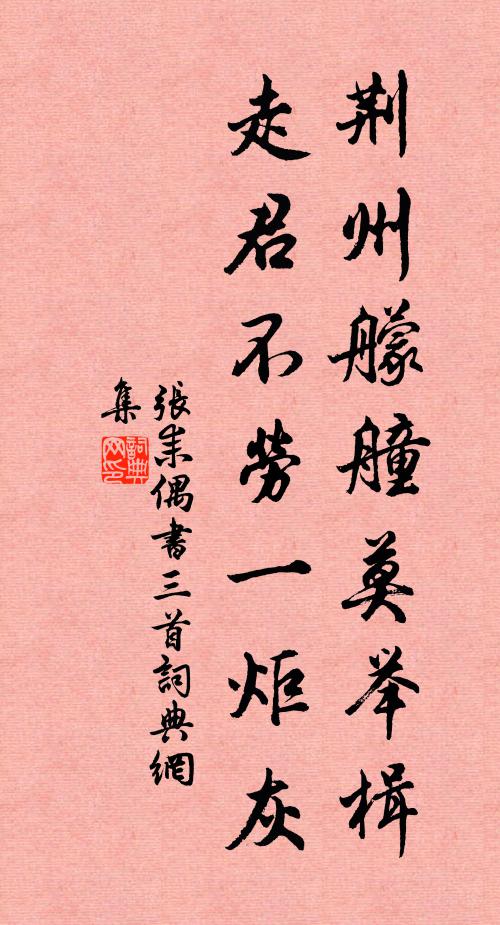 荆州艨艟莫举楫
走君不勞一炬灰
張耒偶書三首詞典網
集
詞典
网印